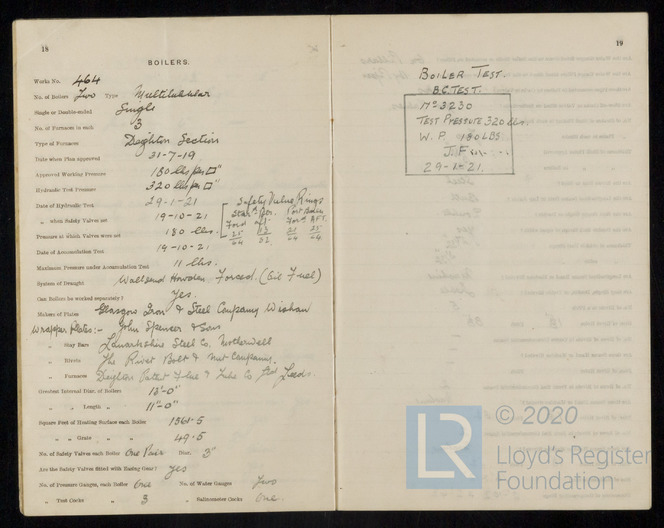 18
BOILERS.
Works No. 464
No. of Boilers Two Type Multitubular
Single or Double-ended Single
No. of Furnaces in each 3
Type of Furnaces Deighton Section
Date when Plan approved 31-7-19
Approved Working Pressure 180 lbs per □"
Hydraulic Test Pressure 320 lbs per □"
Date of Hydraulic Test 29-1-21
" when Safety Valves set 19-10-21
Pressure at which Valves were set 180 lbs.
Safety Valve Rings
Star'd Bor. Port Boiler
For'd aft. For'd AFT.
Date of Accumulation Test 19-10-21
Maximum Pressure under Accumulation Test 11 lbs.
System of Draught Wallsend Howden Forced. (Oil Fuel)
Can Boilers be worked separately? Yes.
Makers of Plates Glasgow Iron & Steel Company Wishaw
Wrapper Plates:- John Spencer & Sons
" Stay Bars Lanarkshire Steel Co. Motherwell
" Rivets The Rivet Bolt & Nut Company.
" Furnaces Deighton Patent Flue & Tube Co Ltd Leeds.
Greatest Internal Diam. of Boilers 13'-0"
" " Length " 11"-0"
Square Feet of Heating Surface each Boiler 1361.5
" " Grate " " 49.5
No. of Safety Valves each Boiler One Pair Diam. 3"
Are the Safety Valves fitted with Easing Gear? Yes
No. of Pressure Gauges, each Boiler One No. of Water Gauges Two
" Test Cocks " 3 " Salinometer Cocks One.
19
BOILER TEST.
B.C. TEST.
No 3230
TEST PRESSURE 320 lbs.
W. P. 180 LBS
J.F
29-1-21.
LR
© 2020
Lloyd's Register
Foundation